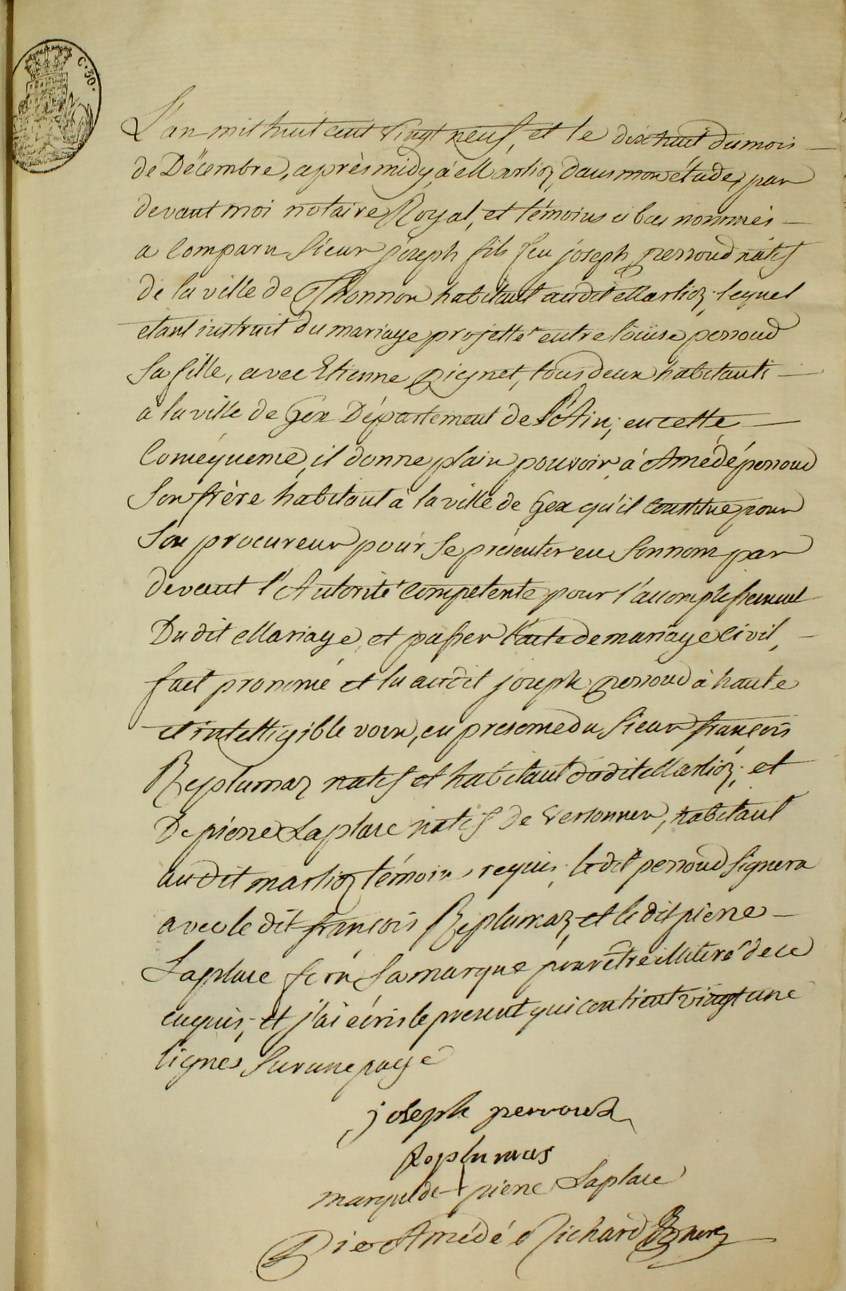 C. 30.
L'an mil huit cent vingt neuf, et le dix huit du mois
de Décembre, après midy, à Marlioz, dans mon étude, par
devant moi notaire Royal, et témoins ci bas nommés
a Comparu Sieur joseph fils feu joseph perroud natif
de la ville de Thonnon habitant audit Marlioz, lequel
etant instruit du mariage projetté entre loüise perroud
Sa fille, avec Etienne Pignet, tous deux habitants
à la ville de Gex Département de l'Ain; en cette
Conséquence, il donne plain pouvoir à Amédé perroud
Son frère habitant à la ville de Gex qu'il constitue pour
Son procureur pour se présenter en Son nom par
devant l'Autorité Competente pour l'accomplissement
Du dit Mariage, et passer l'acte de mariage Civil,
fait prononcé et lu audit joseph perroud à haute
et intelligible voix, en presence du Sieur françois
Replumaz natif et habitant dudit Marlioz, et
De pierre Laplace natif de Versonnex, habitant
audit marlioz témoins requis, le dit perroud Signera
avec le dit françois Replumaz, et le dit pierre
Laplace fera Sa marque pour être illiteré de ce
enquis, et j'ai écris le present qui contient vingt une
lignes Sur une page
joseph perroud
Replumas
marque de pierre Laplace
Amédé Richard